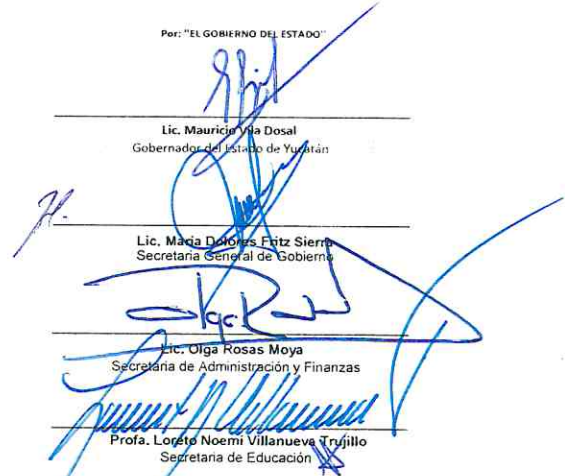 Por: "EL GOBIERNO DEL ESTADO"
Lic. Mauricio Vila Dosal
Gobernador del Estado de Yucatán
Lic. María Dolores Fritz Sierra
Secretaria General de Gobierno
Lic. Olga Rosas Moya
Secretaria de Administración y Finanzas
Profa. Loreto Noemí Villanueva Trujillo
Secretaria de Educación